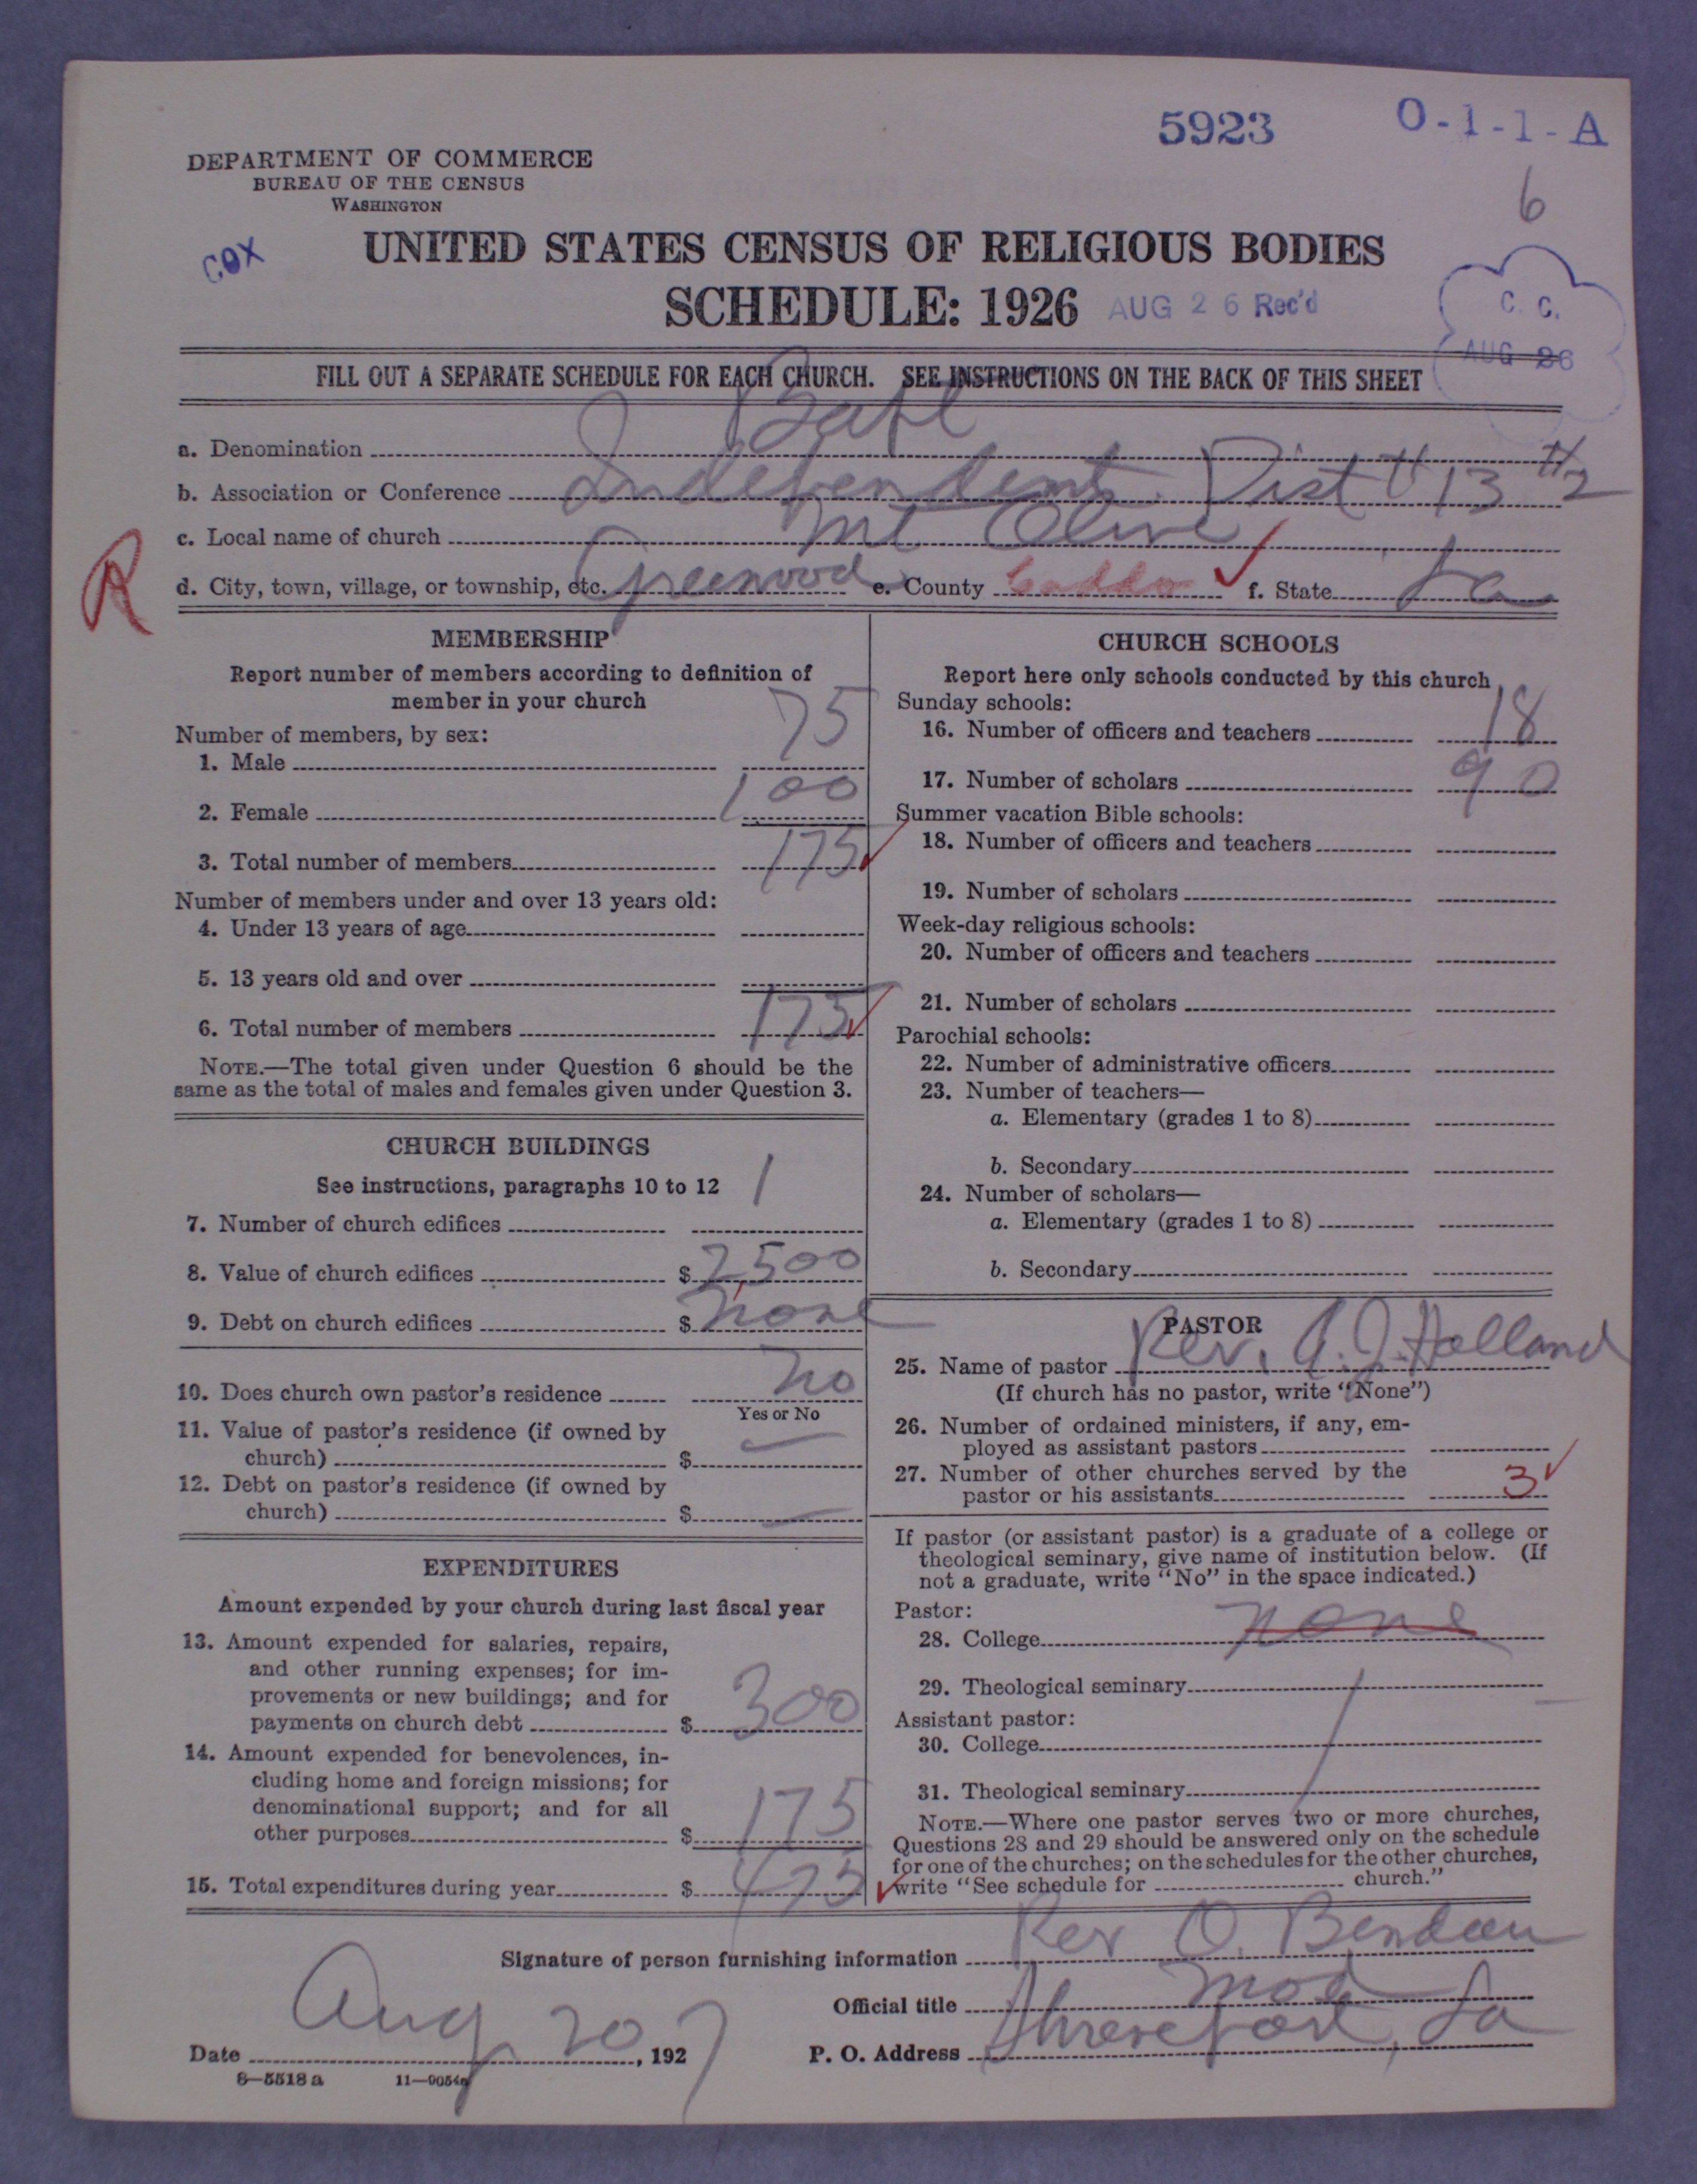 5923
O-1-1-A
DEPARTMENT OF COMMERCE
BUREAU OF THE CENSUS
WASHINGTON
6
COX
UNITED STATES CENSUS OF RELIGIOUS BODIES
SCHEDULE: 1926
AUG 26 Rec'd
C. C.
AUG 26
FILL OUT A SEPARATE SCHEDULE FOR EACH CHURCH. SEE INSTRUCTIONS ON THE BACK OF THIS SHEET
a. Denomination Bapt
b. Association or Conference Independent Dist # 13 #2
c. Local name of church Mt Olive
R
d. City, town, village, or township, etc. Greenwood e. County Caddo f. State La
MEMBERSHIP
Report number of members according to definition of
member in your church
Number of members, by sex:
1. Male 75
2. Female 100
3. Total number of members 175
Number of members under and over 13 years old:
4. Under 13 years of age
5. 13 years old and over
6. Total number of members 175
NOTE.—The total given under Question 6 should be the
same as the total of males and females given under Question 3.
CHURCH BUILDINGS
See instructions, paragraphs 10 to 12
7. Number of church edifices 1
8. Value of church edifices $ 2,500
9. Debt on church edifices $ none
10. Does church own pastor's residence no
Yes or No
11. Value of pastor's residence (if owned by
church) $ —
12. Debt on pastor's residence (if owned by
church) $ —
EXPENDITURES
Amount expended by your church during last fiscal year
13. Amount expended for salaries, repairs,
and other running expenses; for im-
provements or new buildings; and for
payments on church debt $ 300
14. Amount expended for benevolences, in-
cluding home and foreign missions; for
denominational support; and for all
other purposes $ 175
15. Total expenditures during year $ 475
CHURCH SCHOOLS
Report here only schools conducted by this church
Sunday schools:
16. Number of officers and teachers 18
17. Number of scholars 90
Summer vacation Bible schools:
18. Number of officers and teachers
19. Number of scholars
Week-day religious schools:
20. Number of officers and teachers
21. Number of scholars
Parochial schools:
22. Number of administrative officers
23. Number of teachers—
a. Elementary (grades 1 to 8)
b. Secondary
24. Number of scholars—
a. Elementary (grades 1 to 8)
b. Secondary
PASTOR
25. Name of pastor Rev. A. J. Holland
(If church has no pastor, write "None")
26. Number of ordained ministers, if any, em-
ployed as assistant pastors
27. Number of other churches served by the
pastor or his assistants 3
If pastor (or assistant pastor) is a graduate of a college or
theological seminary, give name of institution below. (If
not a graduate, write "No" in the space indicated.)
Pastor:
28. College none
29. Theological seminary
Assistant pastor:
30. College
31. Theological seminary
NOTE.—Where one pastor serves two or more churches,
Questions 28 and 29 should be answered only on the schedule
for one of the churches; on the schedules for the other churches,
write "See schedule for church."
Signature of person furnishing information Rev O.
Official title Mod
Date Aug 20, 1927
P. O. Address Shreveport, La
8—5518 a 11—9054a